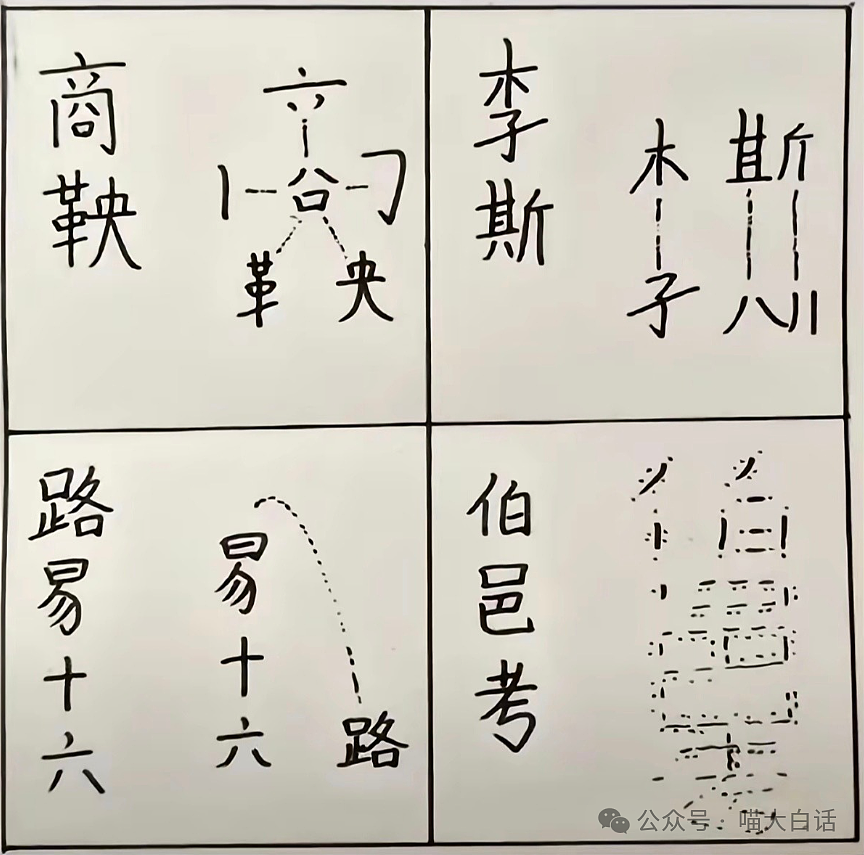 商鞅
六
丨 㕣 ㇆
革 央
李斯
木 斯
子 八 川
路易十六
易十六
路
伯邑考
公众号 · 喵大白话